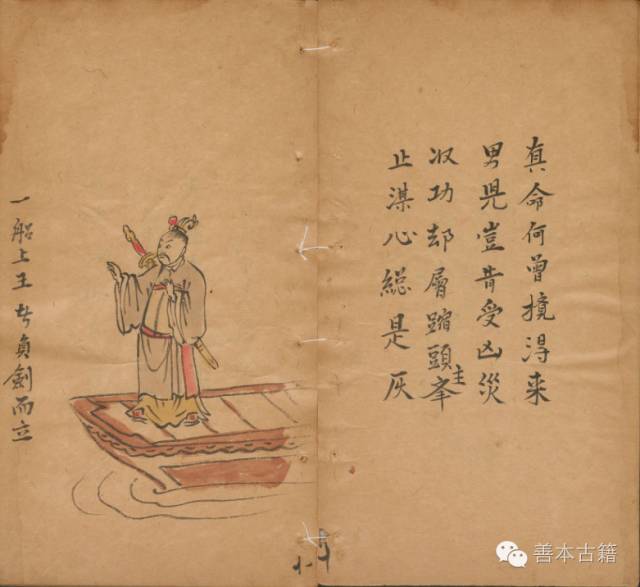 真命何曾得来
男児豈肯受凶災
収功却層頭主峯
止渫心緫是灰
一船上王者負劍而立
善本古籍